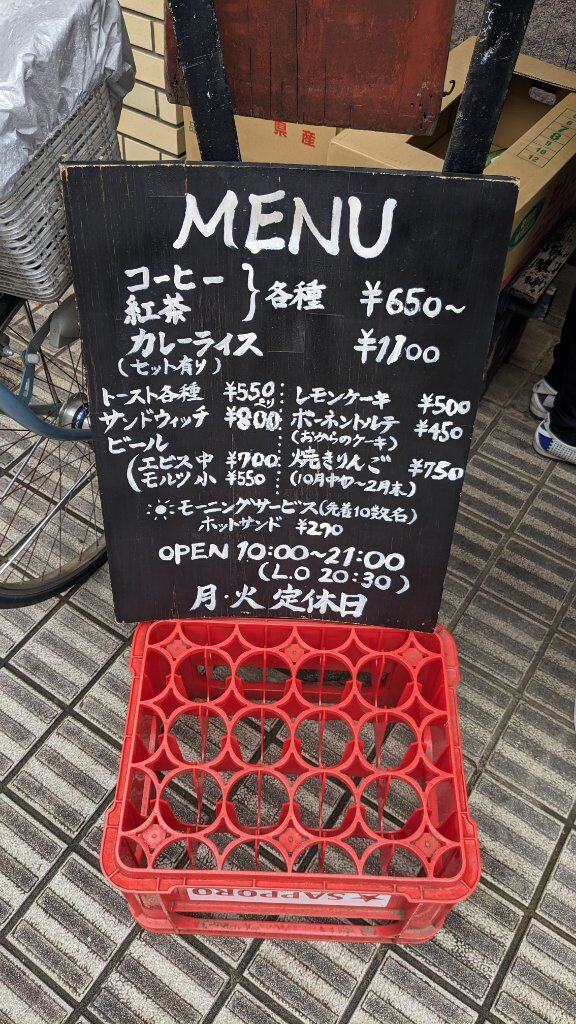 県産
7 8 9 10 12
MENU
コーヒー
紅茶
各種 ¥650~
カレーライス ¥1100
(セット有り)
トースト各種 ¥550より
サンドウィッチ ¥800
ビール
エビス中 ¥700
モルツ小 ¥550
レモンケーキ ¥500
ポーネントルテ ¥450
(おからのケーキ)
焼きりんご ¥750
(10月中旬~2月末)
モーニングサービス(先着10数名)
ホットサンド ¥290
OPEN 10:00~21:00
(L.O 20:30)
月・火 定休日
★SAPPORO